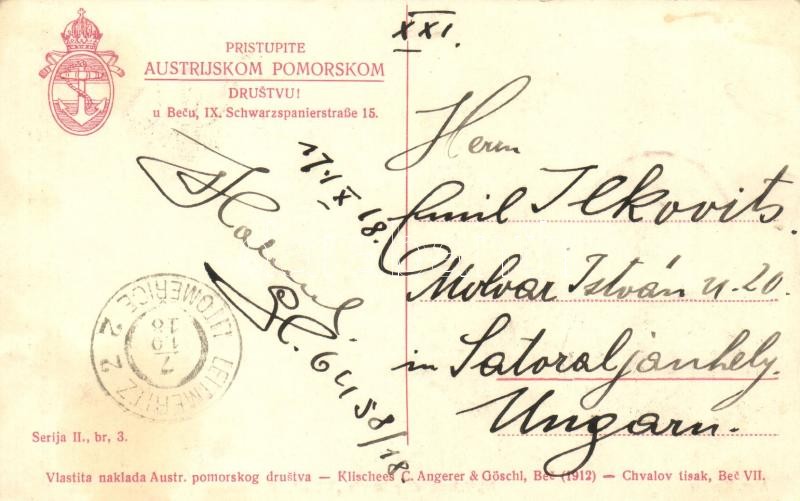 PRISTUPITE
AUSTRIJSKOM POMORSKOM
DRUŠTVU!
u Beču, IX. Schwarzspanierstraße 15.
XXI.
Herrn
Emil Ilkovits.
Molvar István u. 20.
in Satoraljaujhely.
Ungarn.
17/IX 18.
6458/18.
LEITMERITZ 2
LITOMĚŘICE 2
18
Serija II., br, 3.
Vlastita naklada Austr. pomorskog društva — Klischees C. Angerer & Göschl, Beč (1912) — Chvalov tisak, Beč VII.